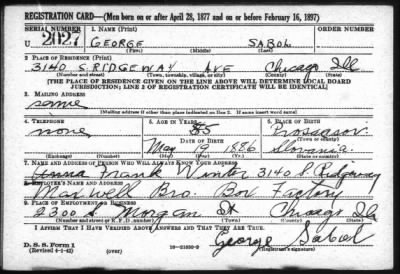 REGISTRATION CARD—(Men born on or after April 28, 1877 and on or before February 16, 1897)
SERIAL NUMBER 1. NAME (Print) ORDER NUMBER
U 2027 GEORGE SABOL
(First) (Middle) (Last)
2. PLACE OF RESIDENCE (Print)
3140 S. RIDGEWAY AVE Chicago Ill
(Number and street) (Town, township, village, or city) (County) (State)
[THE PLACE OF RESIDENCE GIVEN ON THE LINE ABOVE WILL DETERMINE LOCAL BOARD
JURISDICTION; LINE 2 OF REGISTRATION CERTIFICATE WILL BE IDENTICAL]
3. MAILING ADDRESS
same
[Mailing address if other than place indicated on line 2. If same insert word same]
4. TELEPHONE 5. AGE IN YEARS 6. PLACE OF BIRTH
none 55
DATE OF BIRTH (Town or county)
May 19 1886 Slovania
(Exchange) (Number) (Mo.) (Day) (Yr.) (State or country)
7. NAME AND ADDRESS OF PERSON WHO WILL ALWAYS KNOW YOUR ADDRESS
Anna Frank Winter 3140 S. Ridgeway
8. EMPLOYER'S NAME AND ADDRESS
Maxwell Bro. Box Factory
9. PLACE OF EMPLOYMENT OR BUSINESS
2300 S Morgan St Chicago Ill
(Number and street or R. F. D. number) (Town) (County) (State)
I AFFIRM THAT I HAVE VERIFIED ABOVE ANSWERS AND THAT THEY ARE TRUE.
D. S. S. Form 1
(Revised 4-1-42) (over) 16—21630-2 George Sabol